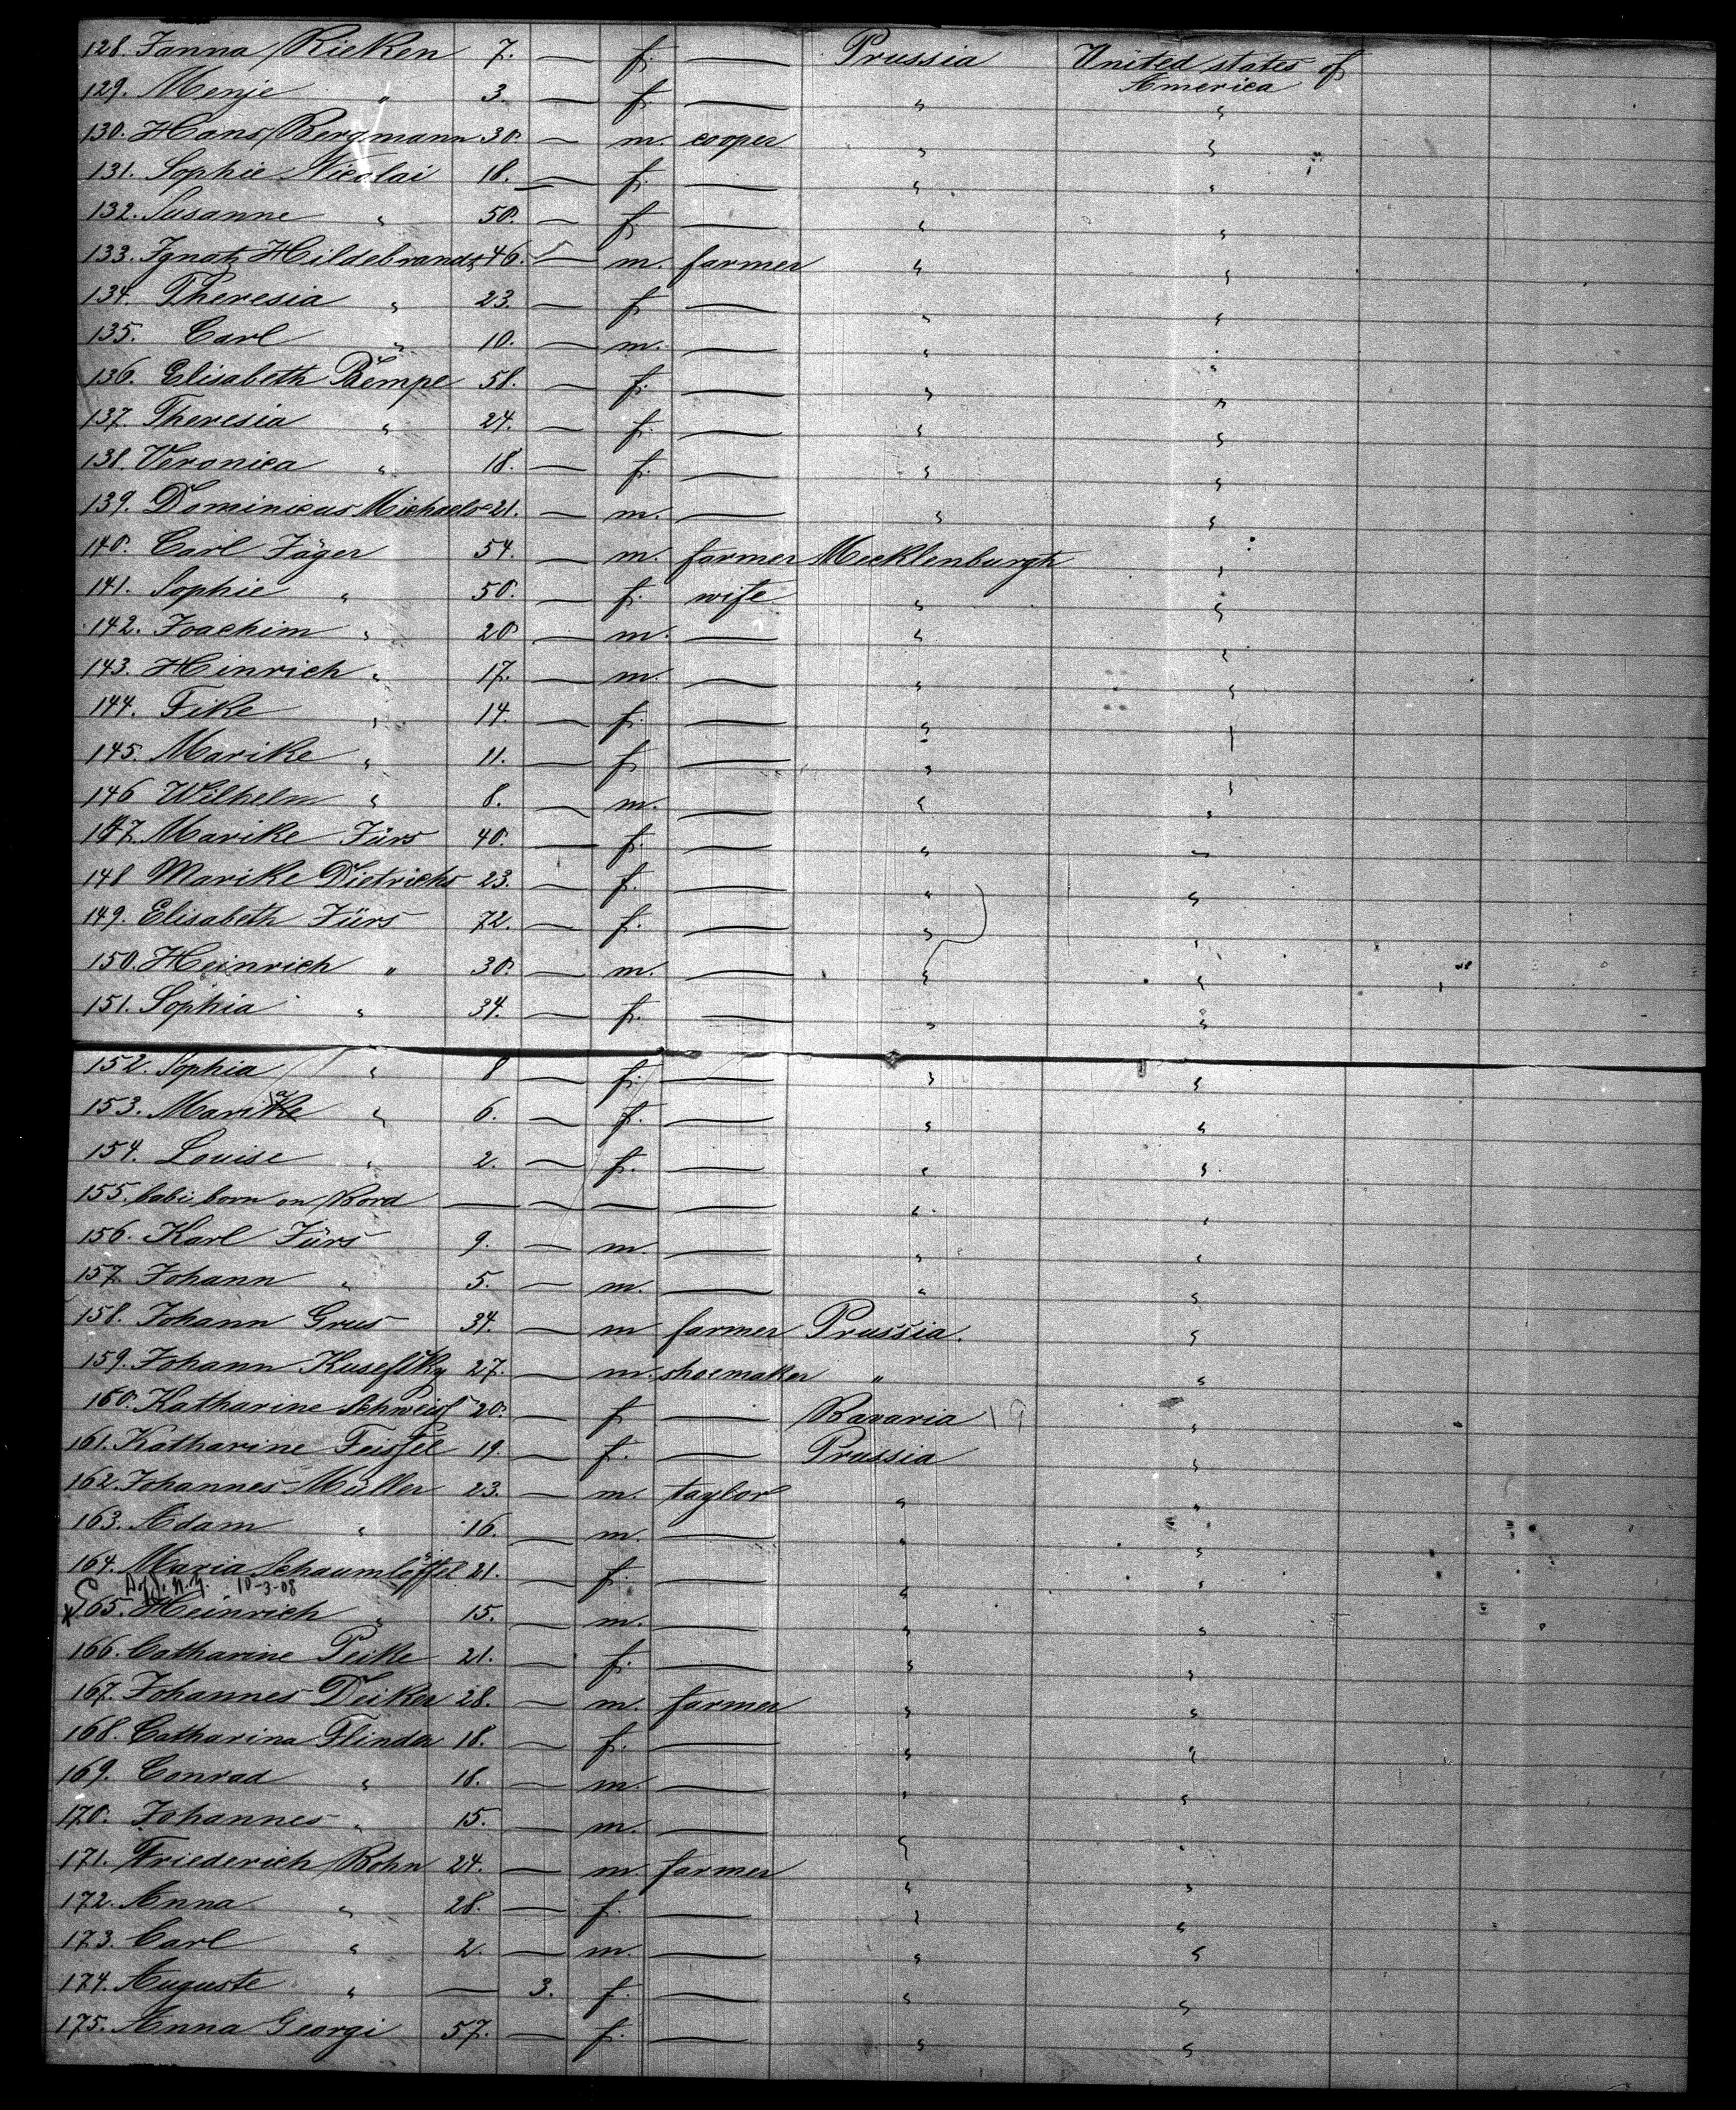 128. Janna Rieken 7. — f. — Prussia United states of
America
129. Menje " 3. — f. — " "
130. Hans Bergmann 30. — m. cooper " "
131. Sophie Nicolai 18. — f. — " "
132. Susanne " 50. — f. — " "
133. Ignatz Hildebrandt 46. — m. farmer " "
134. Theresia " 23. — f. — " "
135. Carl " 10. — m. — " "
136. Elisabeth Bempe 58. — f. — " "
137. Theresia " 24. — f. — " "
138. Veronica " 18. — f. — " "
139. Dominicus Michaels 21. — m. — " "
140. Carl Jäger 54. — m. farmer Mecklenburgh "
141. Sophie " 50. — f. wife " "
142. Joachim " 20 — m. — " "
143. Hinrich " 17. — m. — " "
144. Fike " 14. — f. — " "
145. Marike " 11. — f. — " "
146 Wilhelm " 8. — m. — " "
147. Marike Fürs 40. — f. — " "
148 Marike Dietrichs 23. — f. — " "
149. Elisabeth Fürs 72. — f. — " "
150. Heinrich " 30. — m. — " "
151. Sophia " 34. — f. — " "
152. Sophia " 8 — f. — " "
153. Marike " 6. — f. — " "
154. Louise " 2. — f. — " "
155. babi born on Bord — — — — " "
156. Karl Fürs 9. — m. — " "
157. Johann " 5. — m. — " "
158. Johann Grus 34. — m farmer Prussia. "
159. Johann 27. — m. shoemaker " "
160. Katharine Schweiß 20. — f — Bavaria "
161. Katharine Feissel 19. — f. — Prussia "
162. Johannes Müller 23. — m. taylor " "
163. Adam " 16. — m. — " "
164. Maria Schaumlöffel 21. — f. — " "
N.Y. 10-3-08
165. Heinrich " 15. — m. — " "
166. Catharine Peike 21. — f. — " "
167. Johannes Deiker 28. — m. farmer " "
168. Catharina Flinder 18. — f. — " "
169. Conrad " 18. — m. — " "
170. Johannes " 15. — m. — " "
171. Friederich Bohn 24. — m. farmer " "
172. Anna " 28. — f. — " "
173. Carl " 2. — m. — " "
174. Auguste " — 3. f. — " "
175. Anna Georgi 57. — f. — " "